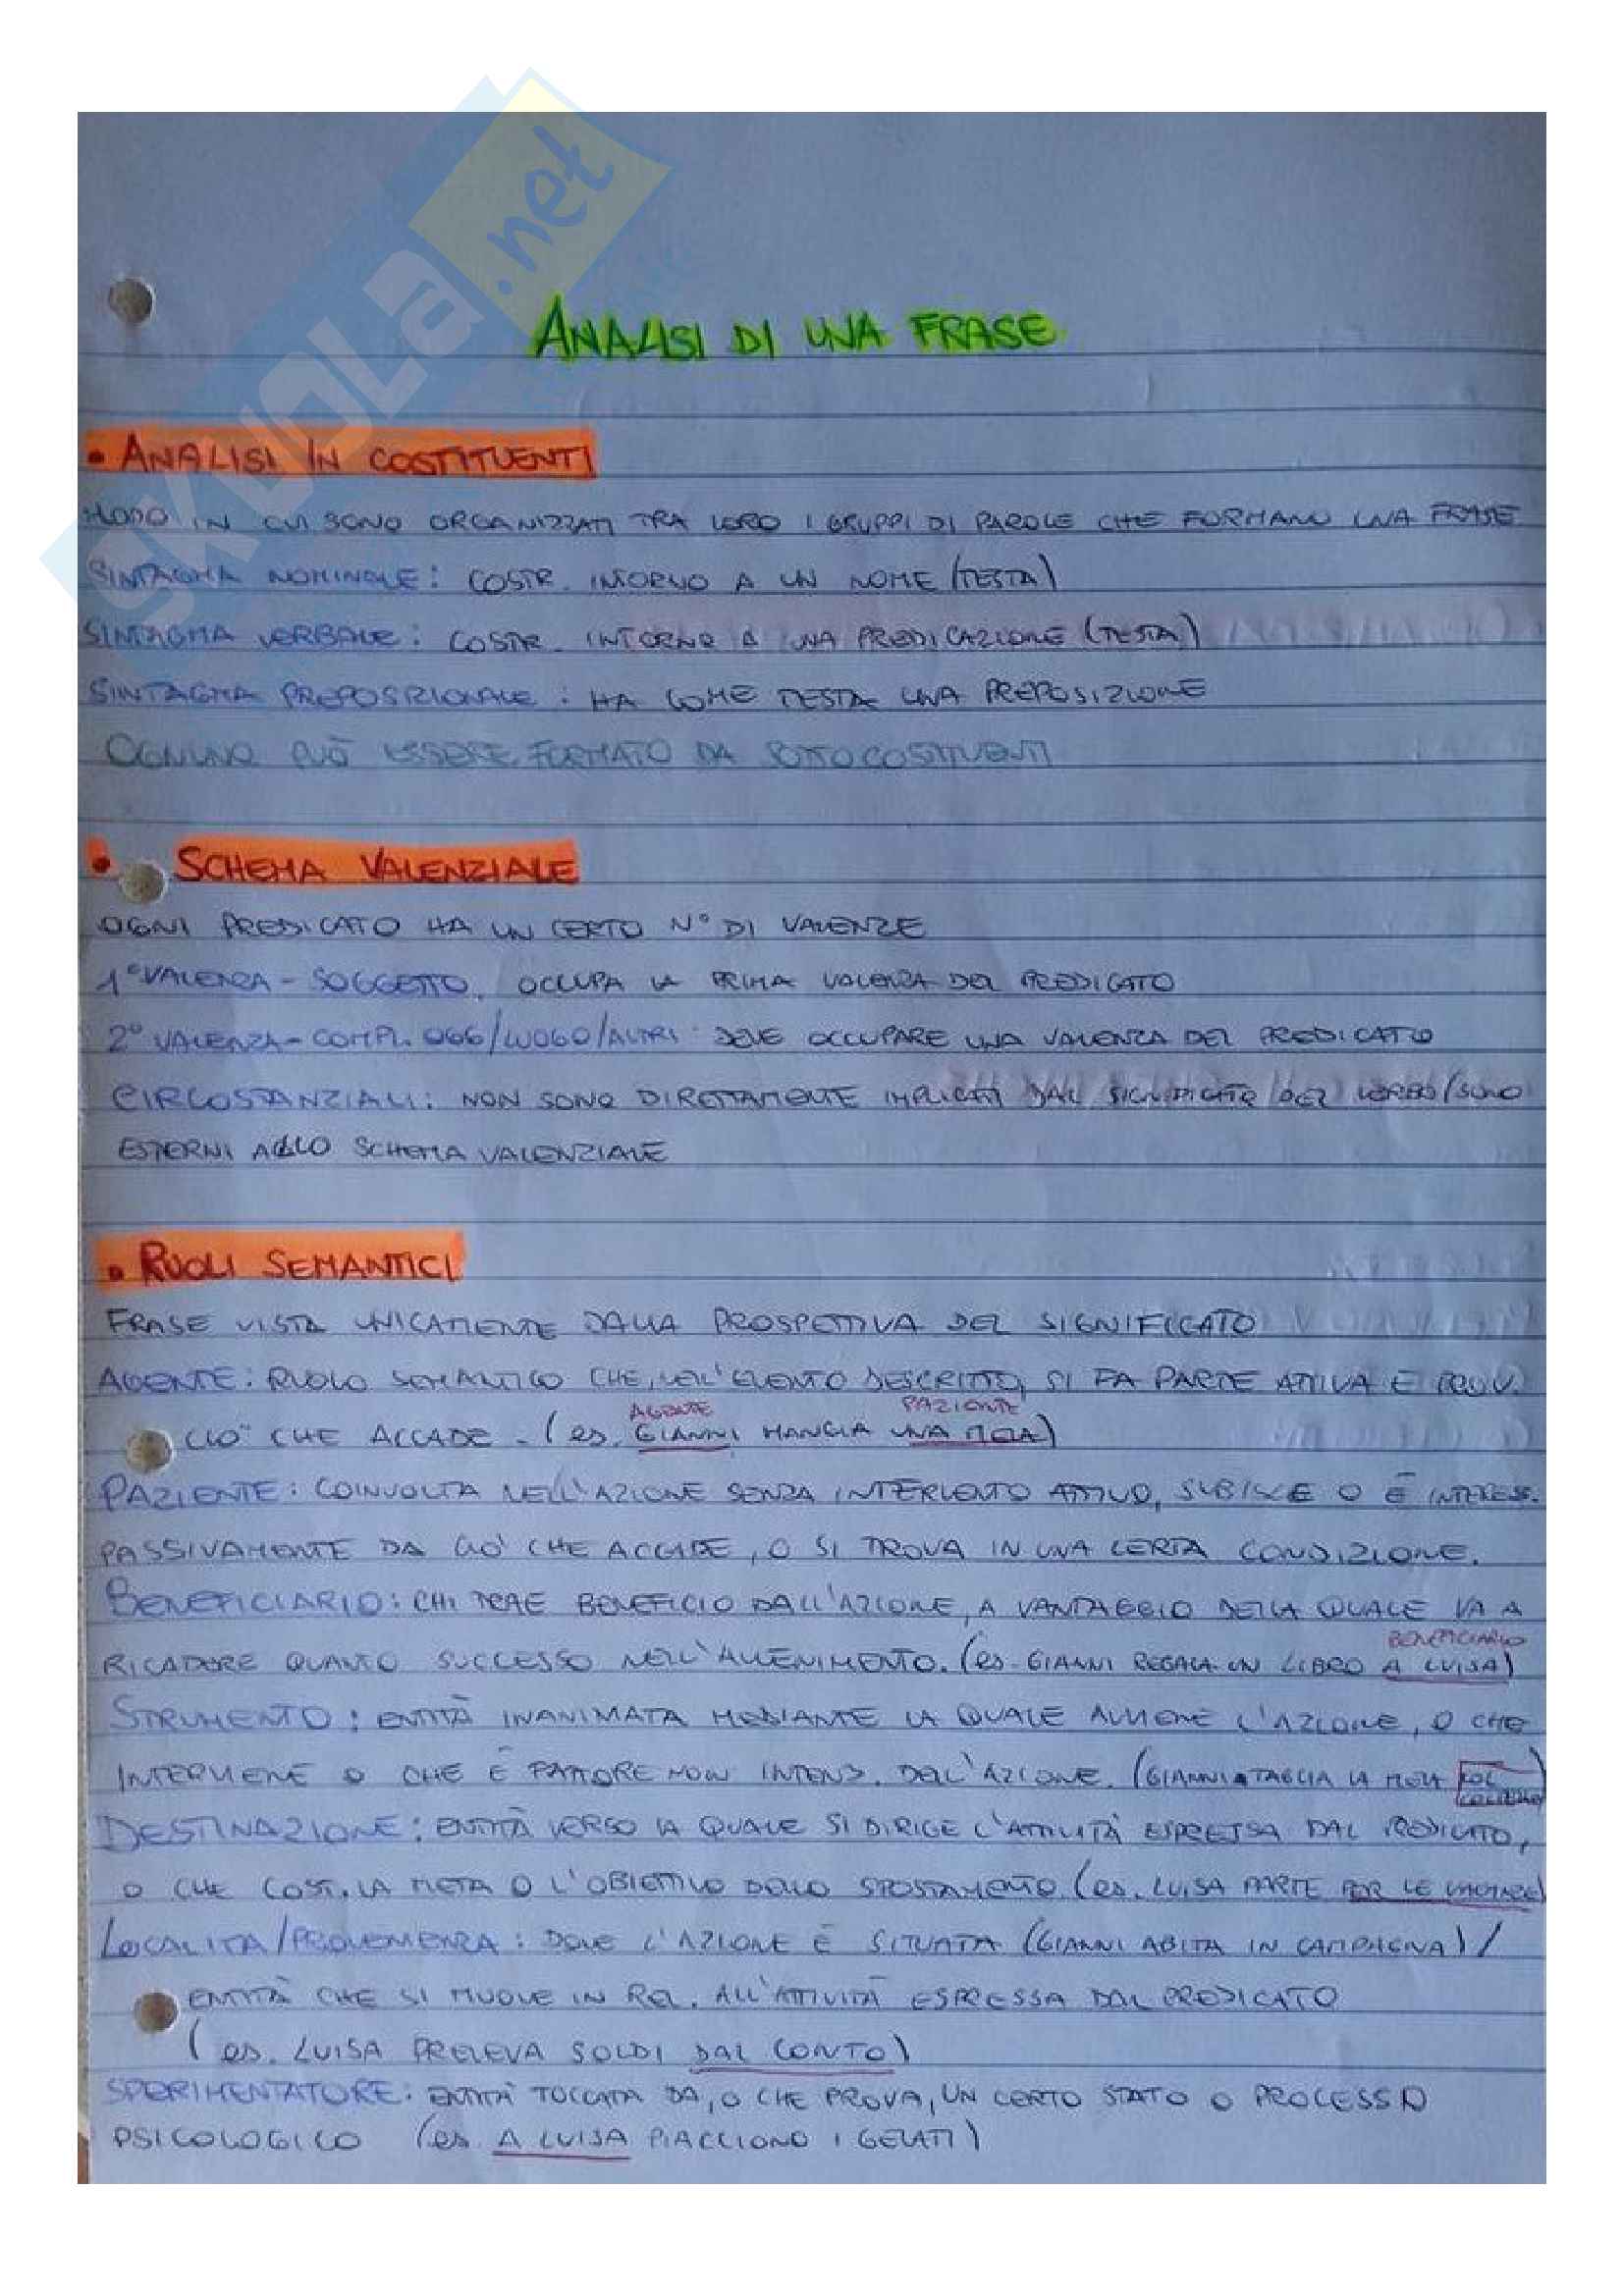 SKUOLA.net
ANALISI DI UNA FRASE
• ANALISI IN COSTITUENTI
MODO IN CUI SONO ORGANIZZATI TRA LORO I GRUPPI DI PAROLE CHE FORMANO UNA FRASE
SINTAGMA NOMINALE: COSTR. INTORNO A UN NOME (TESTA)
SINTAGMA VERBALE: COSTR. INTORNO A UNA PREDICAZIONE (TESTA)
SINTAGMA PREPOSIZIONALE: HA COME TESTA UNA PREPOSIZIONE
OGNUNO PUÒ ESSERE FORMATO DA SOTTOCOSTITUENTI
• SCHEMA VALENZIALE
OGNI PREDICATO HA UN CERTO N° DI VALENZE
1° VALENZA - SOGGETTO. OCCUPA LA PRIMA VALENZA DEL PREDICATO
2° VALENZA - COMPL. OGG/LUOGO/ALTRI: DEVE OCCUPARE UNA VALENZA DEL PREDICATO
CIRCOSTANZIALI: NON SONO DIRETTAMENTE IMPLICATI DAL SIGNIFICATO DEL VERBO/SONO
ESTERNI ALLO SCHEMA VALENZIALE
• RUOLI SEMANTICI
FRASE VISTA UNICAMENTE DALLA PROSPETTIVA DEL SIGNIFICATO
AGENTE: RUOLO SEMANTICO CHE, NELL'EVENTO DESCRITTO, SI FA PARTE ATTIVA E PROV.
AGENTE PAZIENTE
CIÒ CHE ACCADE - (es. GIANNI MANGIA UNA MELA)
PAZIENTE: COINVOLTA NELL'AZIONE SENZA INTERVENTO ATTIVO, SUBISCE O È INTERESS.
PASSIVAMENTE DA CIÒ CHE ACCADE, O SI TROVA IN UNA CERTA CONDIZIONE.
BENEFICIARIO: CHI TRAE BENEFICIO DALL'AZIONE, A VANTAGGIO DELLA QUALE VA A
BENEFICIARIO
RICADERE QUANTO SUCCESSO NELL'AVVENIMENTO. (es. GIANNI REGALA UN LIBRO A LUISA)
STRUMENTO: ENTITÀ INANIMATA MEDIANTE LA QUALE AVVIENE L'AZIONE, O CHE
INTERVIENE O CHE È FATTORE NON INTENZ. DELL'AZIONE. (GIANNI TAGLIA LA MELA COL
COLTELLO)
DESTINAZIONE: ENTITÀ VERSO LA QUALE SI DIRIGE L'ATTIVITÀ ESPRESSA DAL PREDICATO,
O CHE COST. LA META O L'OBIETTIVO DELLO SPOSTAMENTO (es. LUISA PARTE PER LE VACANZE)
LOCALITÀ/PROVENIENZA: DOVE L'AZIONE È SITUATA (GIANNI ABITA IN CAMPAGNA) /
ENTITÀ CHE SI MUOVE IN REL. ALL'ATTIVITÀ ESPRESSA DAL PREDICATO
(es. LUISA PRELEVA SOLDI DAL CONTO)
SPERIMENTATORE: ENTITÀ TOCCATA DA, O CHE PROVA, UN CERTO STATO O PROCESSO
PSICOLOGICO (es. A LUISA PIACCIONO I GELATI)